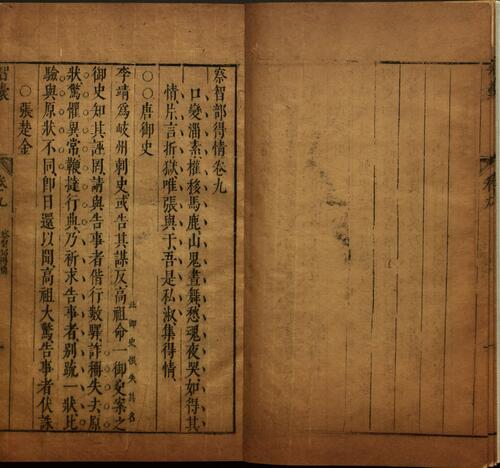 察智部得情卷九
口變淄素權移馬鹿山鬼晝舞愁魂夜哭如得其
情片言折獄唯張與于吾是私淑集得情
○○唐御史
李靖為岐州刺史或告其謀反高祖命一御史案之
此御史恨失其名
御史知其誣罔請與告事者偕行數驛詐稱失去原
狀驚懼異常鞭撻行典乃祈求告事者別疏一狀比
驗與原狀不同即日還以聞高祖大驚告事者伏誅
○張楚金
智囊
卷九